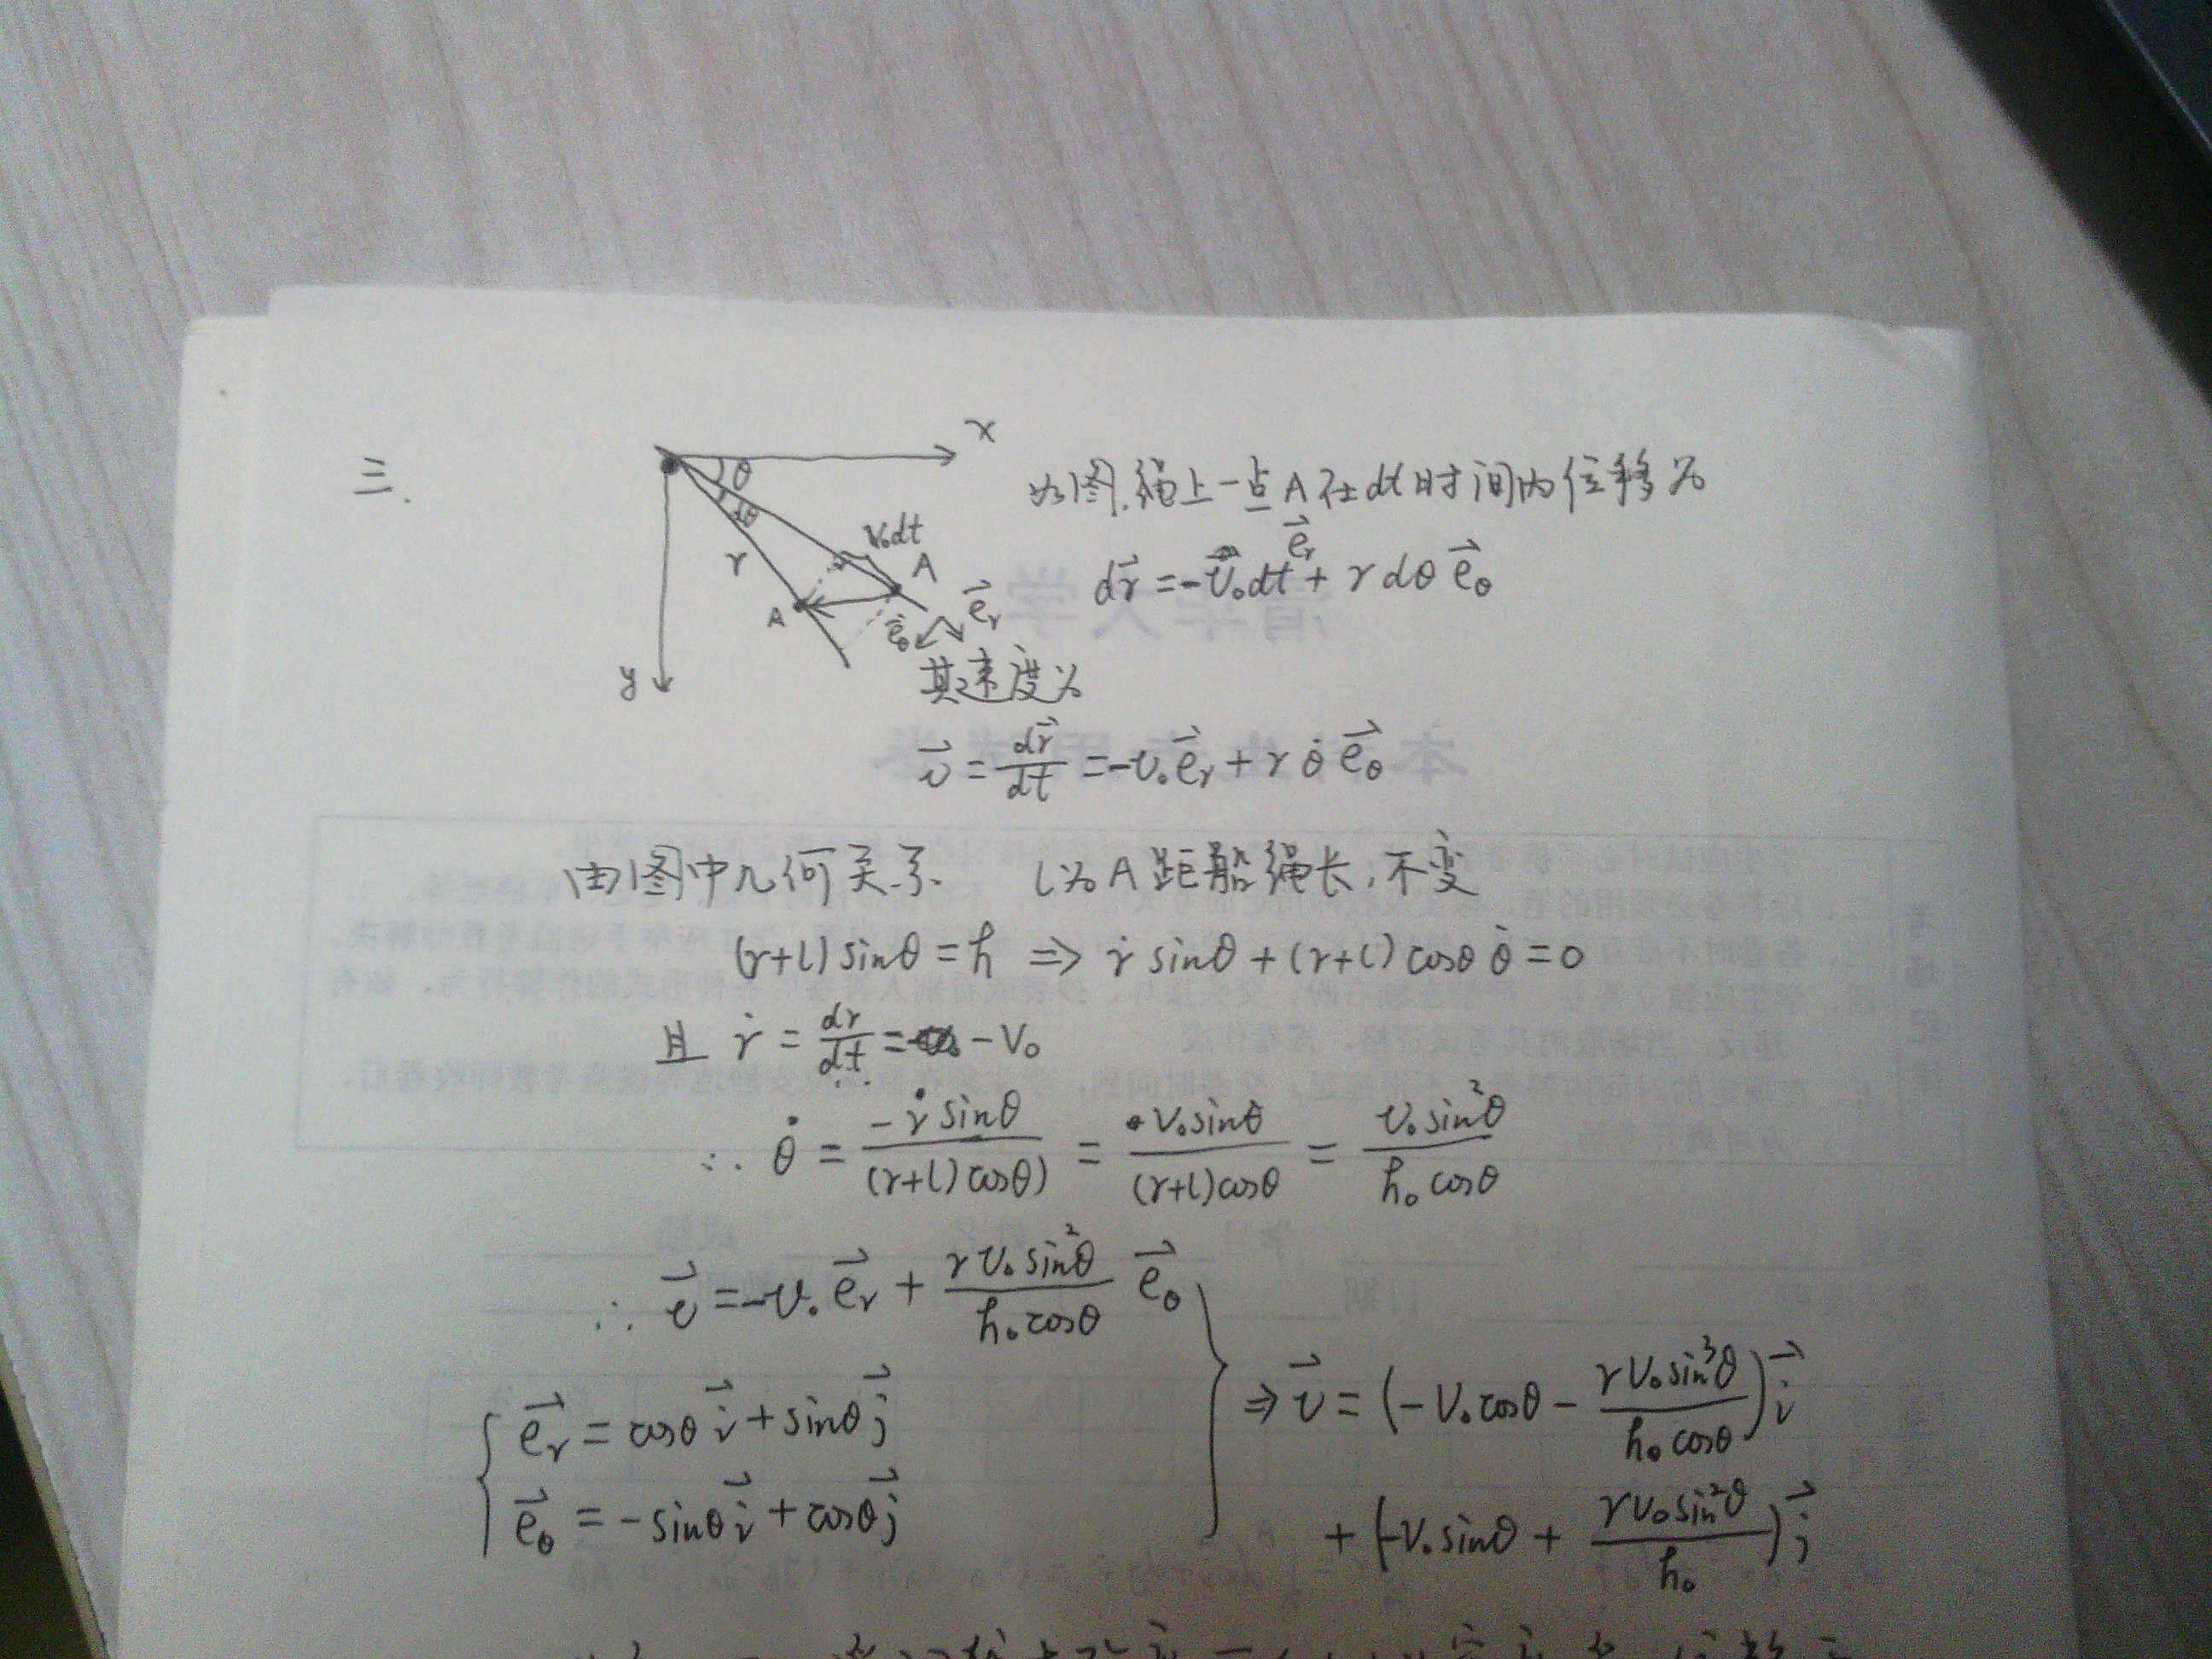 三.
x
θ
如图.绳上一点A在dt时间内位移为
dθ
v₀dt
r
A
A
e⃗r
e⃗θ
dr⃗ = -v₀dt e⃗r + r dθ e⃗θ
y
其速度为
v⃗ = dr⃗/dt = -v₀e⃗r + r θ̇ e⃗θ
由图中几何关系 l为A距船绳长,不变
(r+l) sinθ = h ⇒ ṙ sinθ + (r+l) cosθ θ̇ = 0
且 ṙ = dr/dt = -v₀
∴ θ̇ = -ṙ sinθ/((r+l) cosθ) = v₀sinθ/((r+l)cosθ) = v₀sin²θ/(h₀ cosθ)
∴ v⃗ = -v₀ e⃗r + (r v₀ sin²θ)/(h₀ cosθ) e⃗θ
e⃗r = cosθ i⃗ + sinθ j⃗
e⃗θ = -sinθ i⃗ + cosθ j⃗
⇒ v⃗ = (-v₀cosθ - (r v₀ sin³θ)/(h₀ cosθ)) i⃗
+ (-v₀ sinθ + (r v₀ sin²θ)/h₀) j⃗